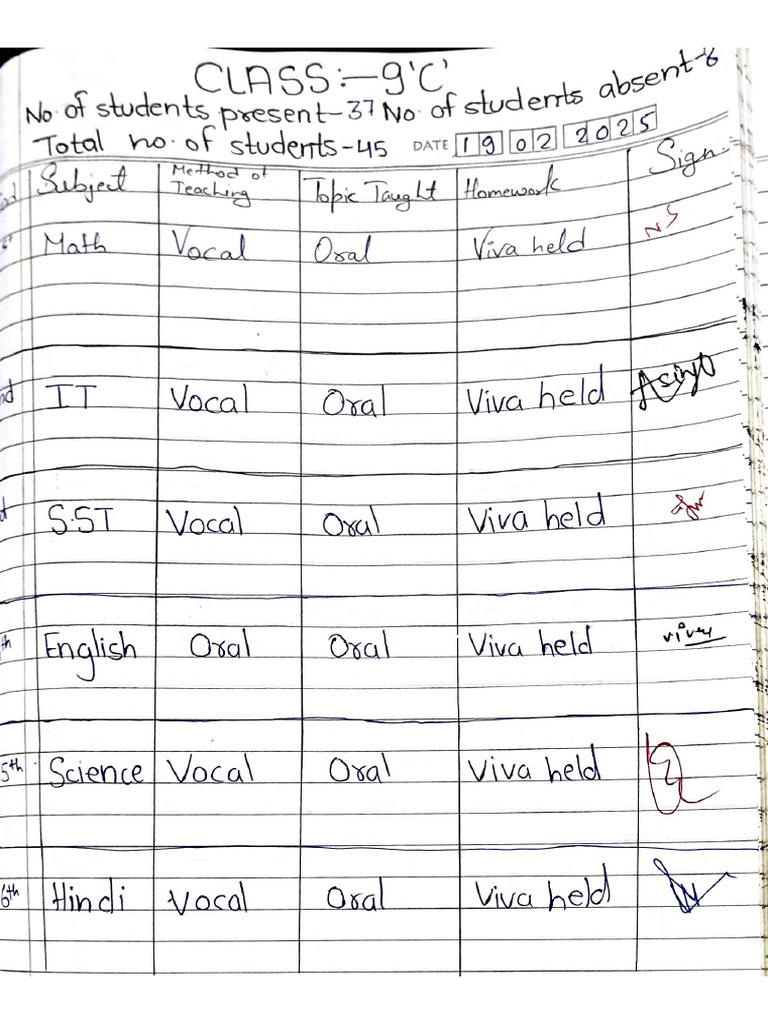 CLASS:-9'C'
No. of students present-37 No. of students absent-8
Total no. of students-45 DATE 19 02 2025
Subject Method of Teaching Topic Taught Homework Sign.
Math Vocal Oral Viva held NS
nd IT Vocal Oral Viva held
S.ST Vocal Oral Viva held
th English Oral Oral Viva held
5th Science Vocal Oral Viva held
6th Hindi Vocal Oral Viva held